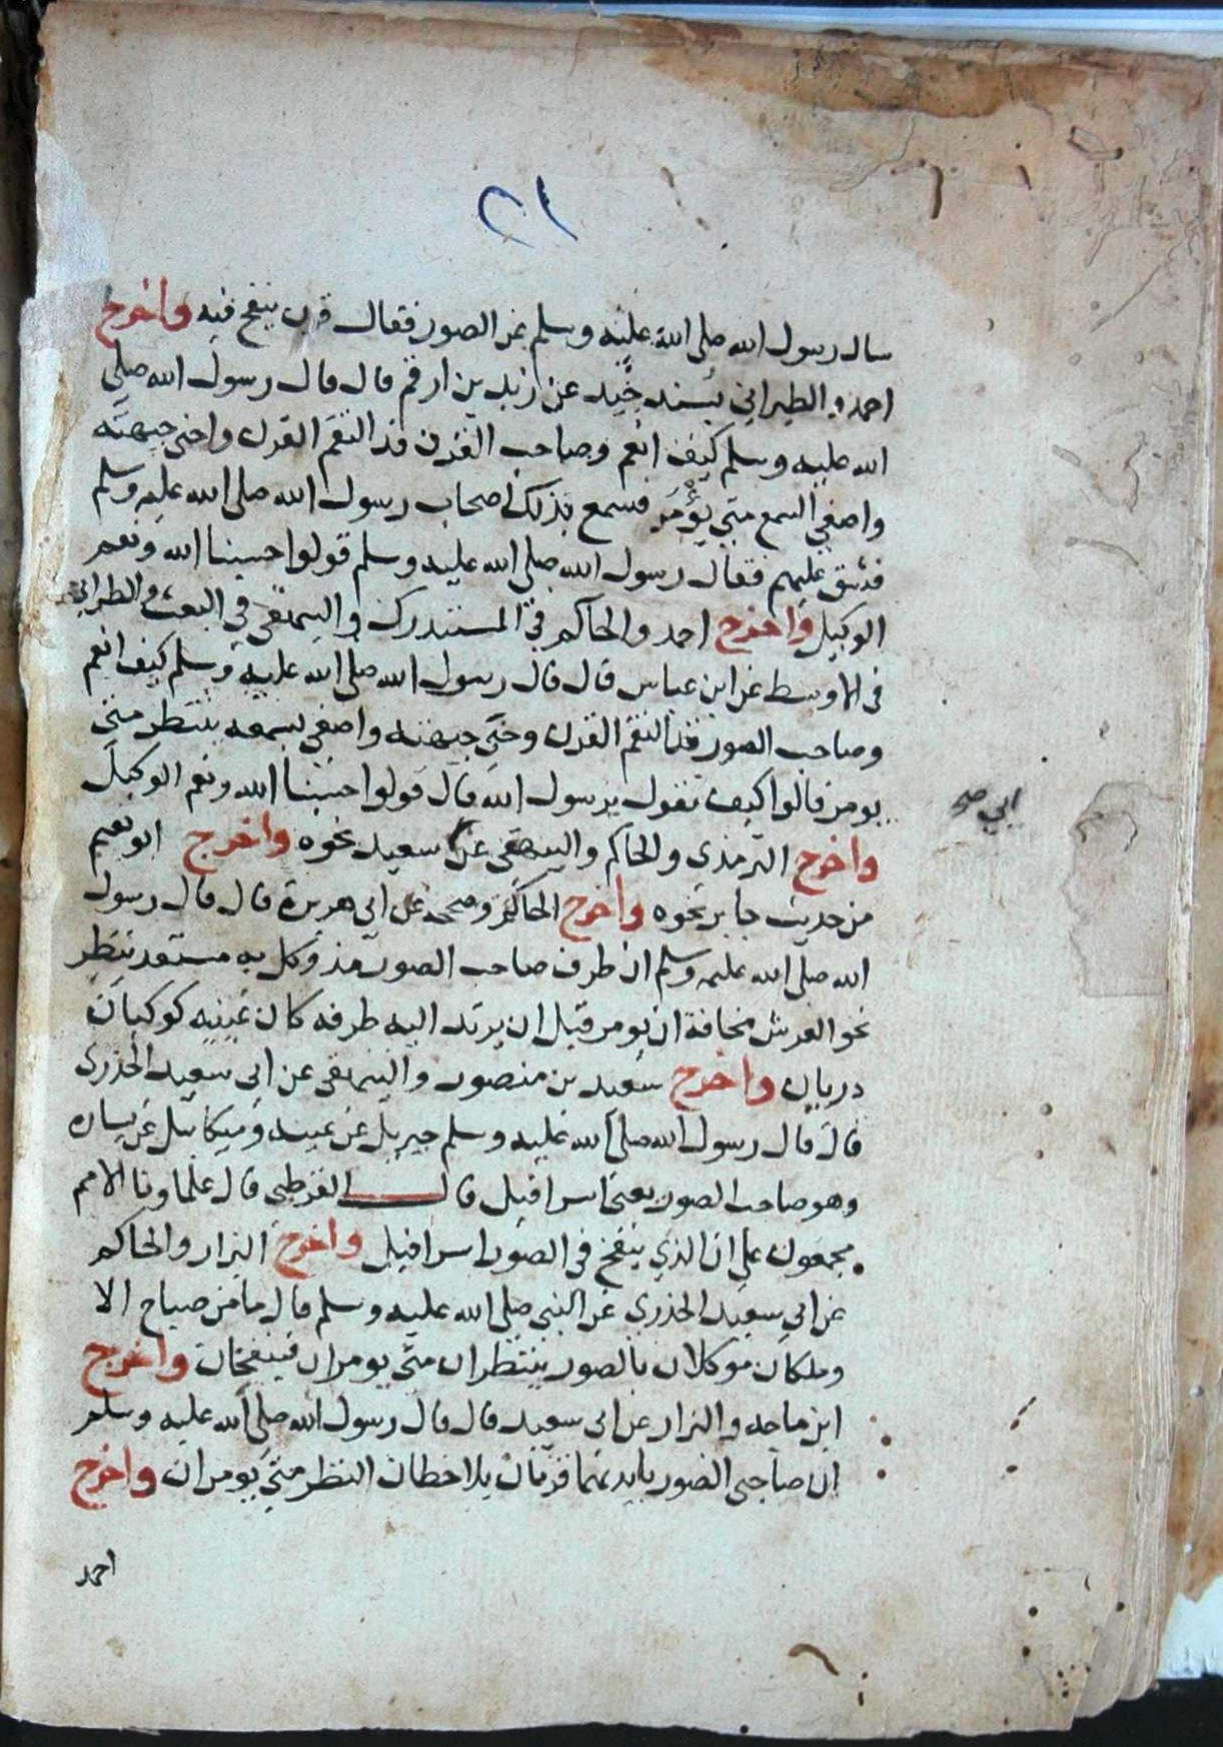 ٢١
سال رسول الله صلى الله عليه وسلم عن الصور فقال قرن ينفخ فيه واخرج
احمد والطبراني بسند جيد عن زيد بن ارقم قال قال رسول الله صلى
الله عليه وسلم كيف انعم وصاحب القرن قد التقم القرن واحنى جبهته
واصغى السمع متى يؤمر فسمع بذلك اصحاب رسول الله صلى الله عليه وسلم
فشق عليهم فقال رسول الله صلى الله عليه وسلم قولوا حسبنا الله ونعم
الوكيل واخرج احمد والحاكم في المستدرك والبيهقي في البعث والطبراني
في الاوسط عن ابن عباس قال قال رسول الله صلى الله عليه وسلم كيف انعم
وصاحب الصور قد التقم القرن وحنى جبهته واصغى بسمعه ينتظر متى
يومر قالوا كيف نقول يرسول الله قال قولوا حسبنا الله ونعم الوكيل
واخرج الترمذي والحاكم والبيهقي عن سعيد نحوه واخرج ابو نعيم
ابي صح
من حديث جابر نحوه واخرج الحاكم وصححه عن ابي هريرة قال قال رسول
الله صلى الله عليه وسلم ان طرف صاحب الصور مذ وكل به مستعد ينتظر
نحو العرش مخافة ان يومر قبل ان يرتد اليه طرفه كان عينيه كوكبان
دريان واخرج سعيد بن منصور والبيهقي عن ابي سعيد الخذري
قال قال رسول الله صلى الله عليه وسلم جبريل عن يمينه وميكائيل عن يساره
وهو صاحب الصور يعني اسرافيل قال القرطبي قال علماونا الامم
مجمعون على ان الذي ينفخ في الصور اسرافيل واخرج البزار والحاكم
عن ابي سعيد الخذري عن النبي صلى الله عليه وسلم قال ما من صباح الا
وملكان موكلان بالصور ينتظران متى يومران فينفخان واخرج
ابن ماجه والبزار عن ابي سعيد قال قال رسول الله صلى الله عليه وسلم
ان صاحبي الصور بايديهما قرنان يلاحظان النظر متى يومران واخرج
احمد